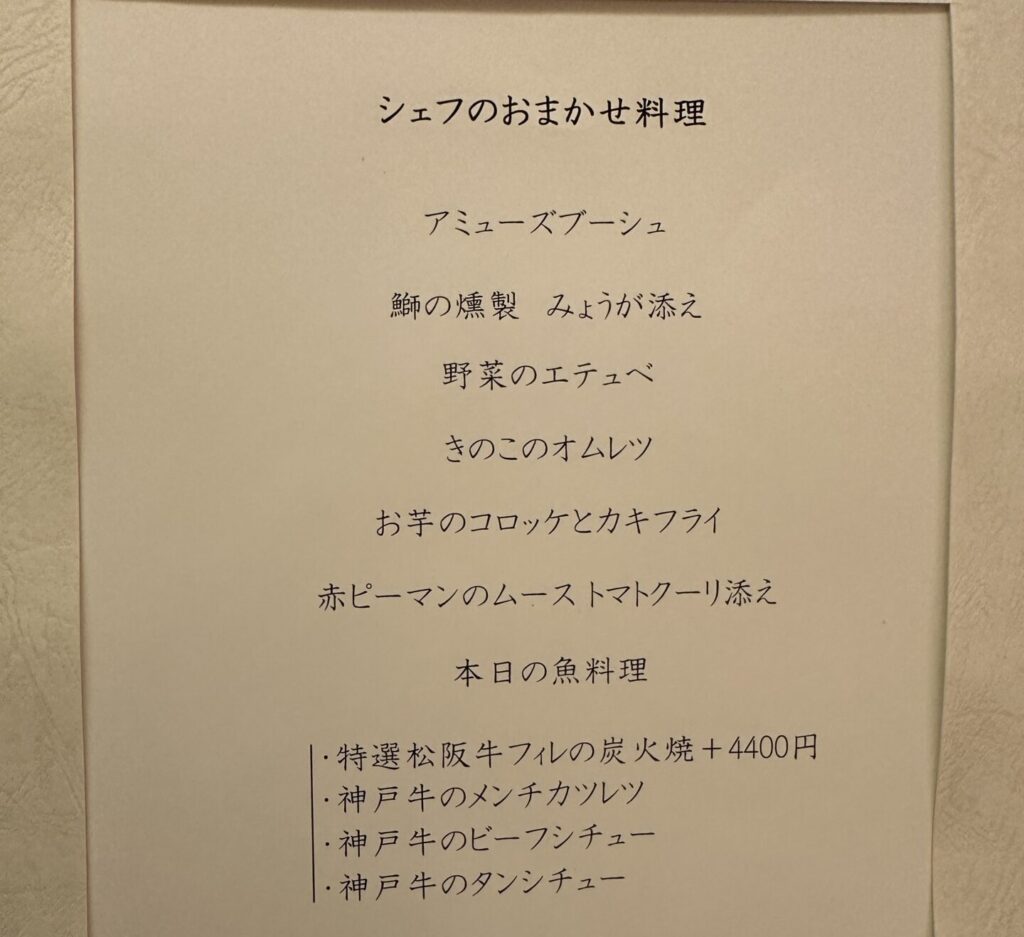 シェフのおまかせ料理
アミューズブーシュ
鰤の燻製　みょうが添え
野菜のエテュベ
きのこのオムレツ
お芋のコロッケとカキフライ
赤ピーマンのムース トマトクーリ添え
本日の魚料理
・特選松阪牛フィレの炭火焼＋4400円
・神戸牛のメンチカツレツ
・神戸牛のビーフシチュー
・神戸牛のタンシチュー